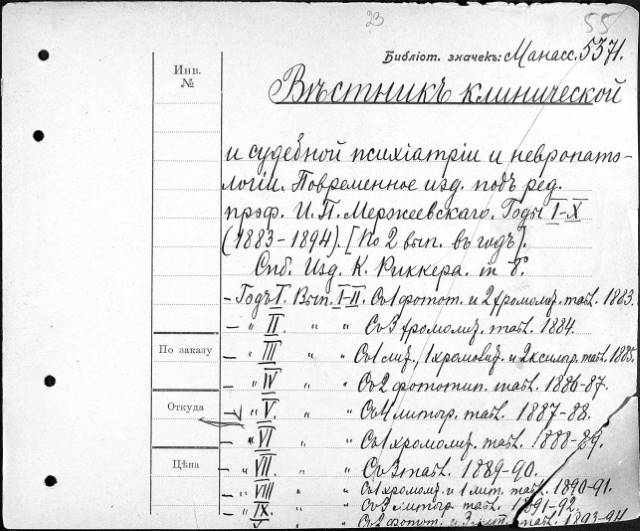 23
55
Библіот. значекъ: Манасс. 5371.
Инв.
№
Вѣстникъ клинической
и судебной психіатріи и невропато-
логіи. Повременное изд. подъ ред.
проф. И. П. Мержеевскаго. Годы I-X
(1883-1894). [По 2 вып. въ годъ].
Спб. Изд. К. Риккера. in 8°.
- Годъ I. Вып. I-II. Съ 1 фотот. и 2 хромолит. табл. 1883.
- " II. " " Съ 3 хромолит. табл. 1884.
По заказу
- " III " " Съ 1 лит., 1 хромолит. и 2 ксилогр. табл. 1885.
- " IV " " Съ 2 фототип. табл. 1886-87.
Откуда
- " V. " " Съ 4 литогр. табл. 1887-88.
- " VI " " Съ 1 хромолит. табл. 1888-89.
Цѣна
- " VII. " " Съ 3 табл. 1889-90.
- " VIII " " Съ 1 хромолит. и 1 лит. табл. 1890-91.
- " IX. " " Съ 3 литогр. табл. 1891-92.
Съ 2 фотот. и 3 лит. табл. 1893-94